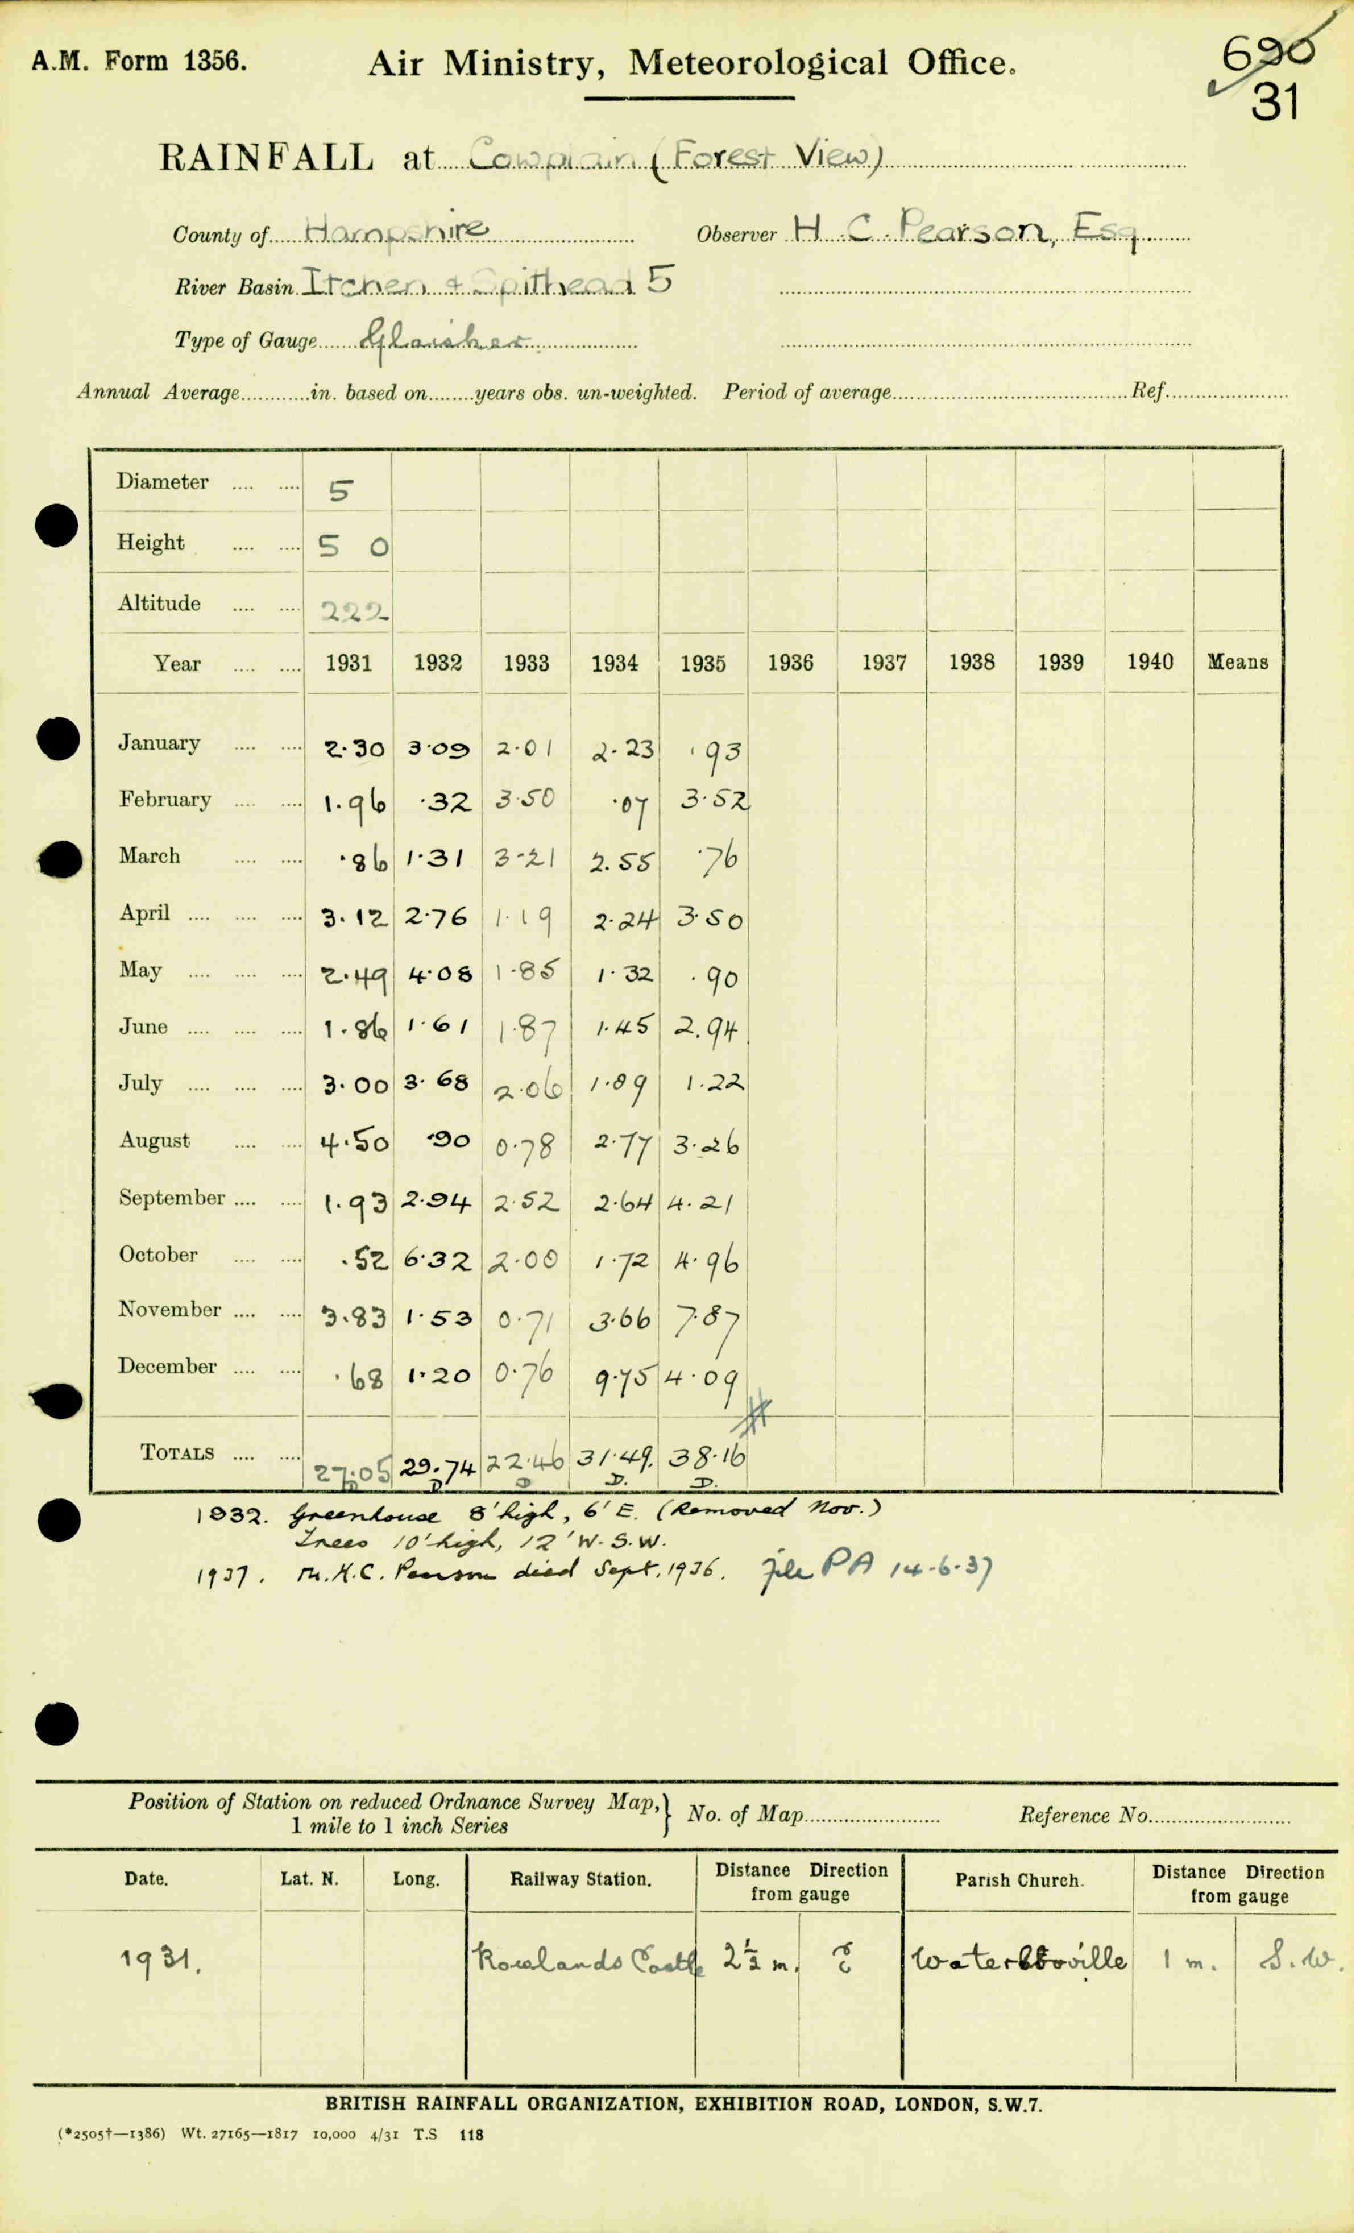 A.M. Form 1356.
Air Ministry, Meteorological Office.
690
31
RAINFALL at Cowplain (Forest View)
County of Hampshire Observer H. C. Pearson, Esq.
River Basin Itchen & Spithead 5
Type of Gauge Glaisher
Annual Average............in. based on........years obs. un-weighted. Period of average............Ref............
Diameter .... .... 5
Height .... .... 5 0
Altitude .... .... 222
Year .... .... 1931 1932 1933 1934 1935 1936 1937 1938 1939 1940 Means
January .... .... 2.30 3.09 2.01 2.23 .93
February .... .... 1.96 .32 3.50 .07 3.52
March .... .... .86 1.31 3.21 2.55 .76
April .... .... .... 3.12 2.76 1.19 2.24 3.50
May .... .... .... 2.49 4.08 1.85 1.32 .90
June .... .... .... 1.86 1.61 1.87 1.45 2.94
July .... .... .... 3.00 3.68 2.06 1.09 1.22
August .... .... 4.50 .90 0.78 2.77 3.26
September .... .... 1.93 2.94 2.52 2.64 4.21
October .... .... .52 6.32 2.00 1.72 4.96
November .... .... 3.83 1.53 0.71 3.66 7.87
December .... .... .68 1.20 0.76 9.75 4.09
TOTALS .... .... 27.05 29.74 22.46 31.49. 38.16
D D D D. D.
1932. Greenhouse 8' high, 6' E. (Removed Nov.)
Trees 10' high, 12' W.S.W.
1937. Mr. H.C. Pearson died Sept. 1936. file PA 14-6-37
Position of Station on reduced Ordnance Survey Map,} No. of Map............ Reference No............
1 mile to 1 inch Series
Date. Lat. N. Long. Railway Station. Distance Direction from gauge Parish Church. Distance Direction from gauge
1931. Rowlands Castle 2½ m. E Waterlooville 1 m. S.W.
BRITISH RAINFALL ORGANIZATION, EXHIBITION ROAD, LONDON, S.W.7.
(*2505†—1386) Wt. 27165—1817 10,000 4/31 T.S 118